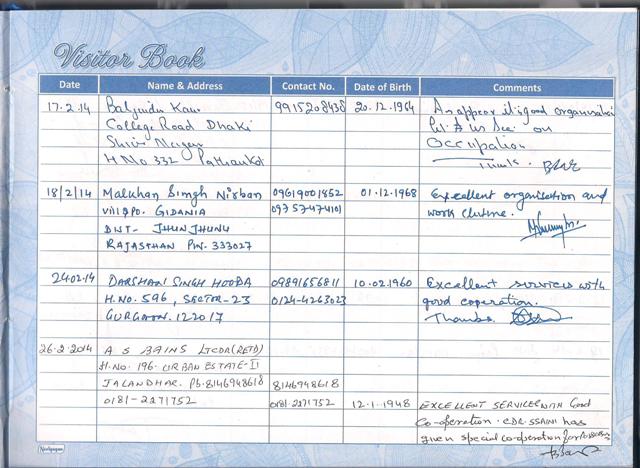 Visitor Book
Date Name & Address Contact No. Date of Birth Comments
17.2.14 Baljinder Kaur 9915208438 20.12.1964 An appear it is good organisation
College Road Dhaki on
Shiv Nagar Occupation
H No 332 Pathankot Thanks.
18/2/14 Malkhan Singh Nirban 09619001852 01.12.1968 Excellent organisation and
Vill & PO. GIDANIA 09757474101 work
DIST- JHUNJHUNU
RAJASTHAN PIN. 333027
24.02.14 DARSHAN SINGH HOODA 09891656811 10.02.1960 Excellent services with
H.NO. 596, SECTOR-23 0124-4263023 good coperation.
GURGAON. 122017 Thanks
26.2.2014 A S BAINS LTCDR(RETD)
H.NO. 196. URBAN ESTATE-II
JALANDHAR. Pb. 8146948618 8146948618
0181-2271752 0181-2271752 12.1.1948 EXCELLENT SERVICE WITH Good
Co-operation. CDR. SSAINI has
given special co-operation for
Navlgagan